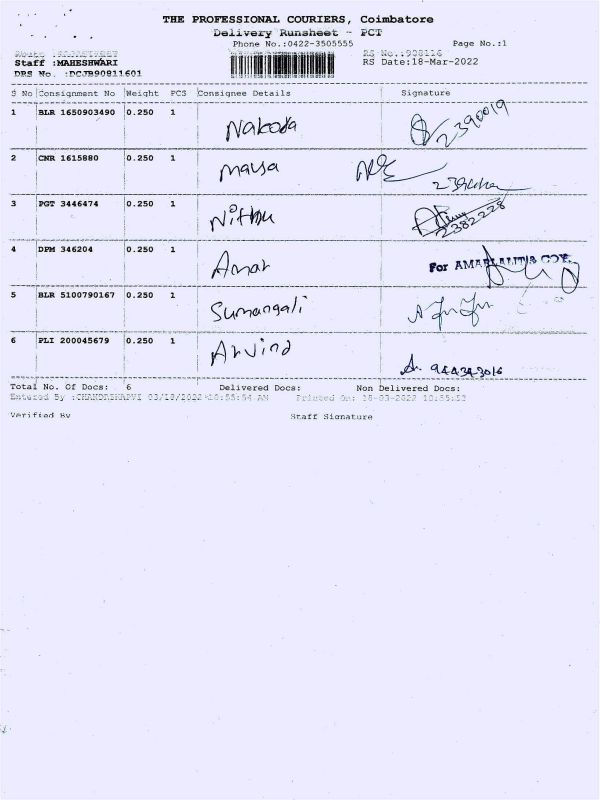 THE PROFESSIONAL COURIERS, Coimbatore
Delivery Runsheet - PCT
Phone No.:0422-3505555 Page No.:1
Route : RS No.:908116
Staff :MAHESHWARI RS Date:18-Mar-2022
DRS No. :DCJB90811601
S No Consignment No Weight PCS Consignee Details Signature
1 BLR 1650903490 0.250 1 Nakoda 2390019
2 CNR 1615880 0.250 1 mansa
3 PGT 3446474 0.250 1 Nithu 2382228
4 DPM 346204 0.250 1 Amar For AMARLALIT'S COY.
5 BLR 5100790167 0.250 1 Sumangali
6 PLI 200045679 0.250 1 Arvind
Total No. Of Docs: 6 Delivered Docs: Non Delivered Docs:
Entered By : 03/18/2022 10:55:54 AM Printed On: 18-03-2022 10:55:53
Verified By Staff Signature